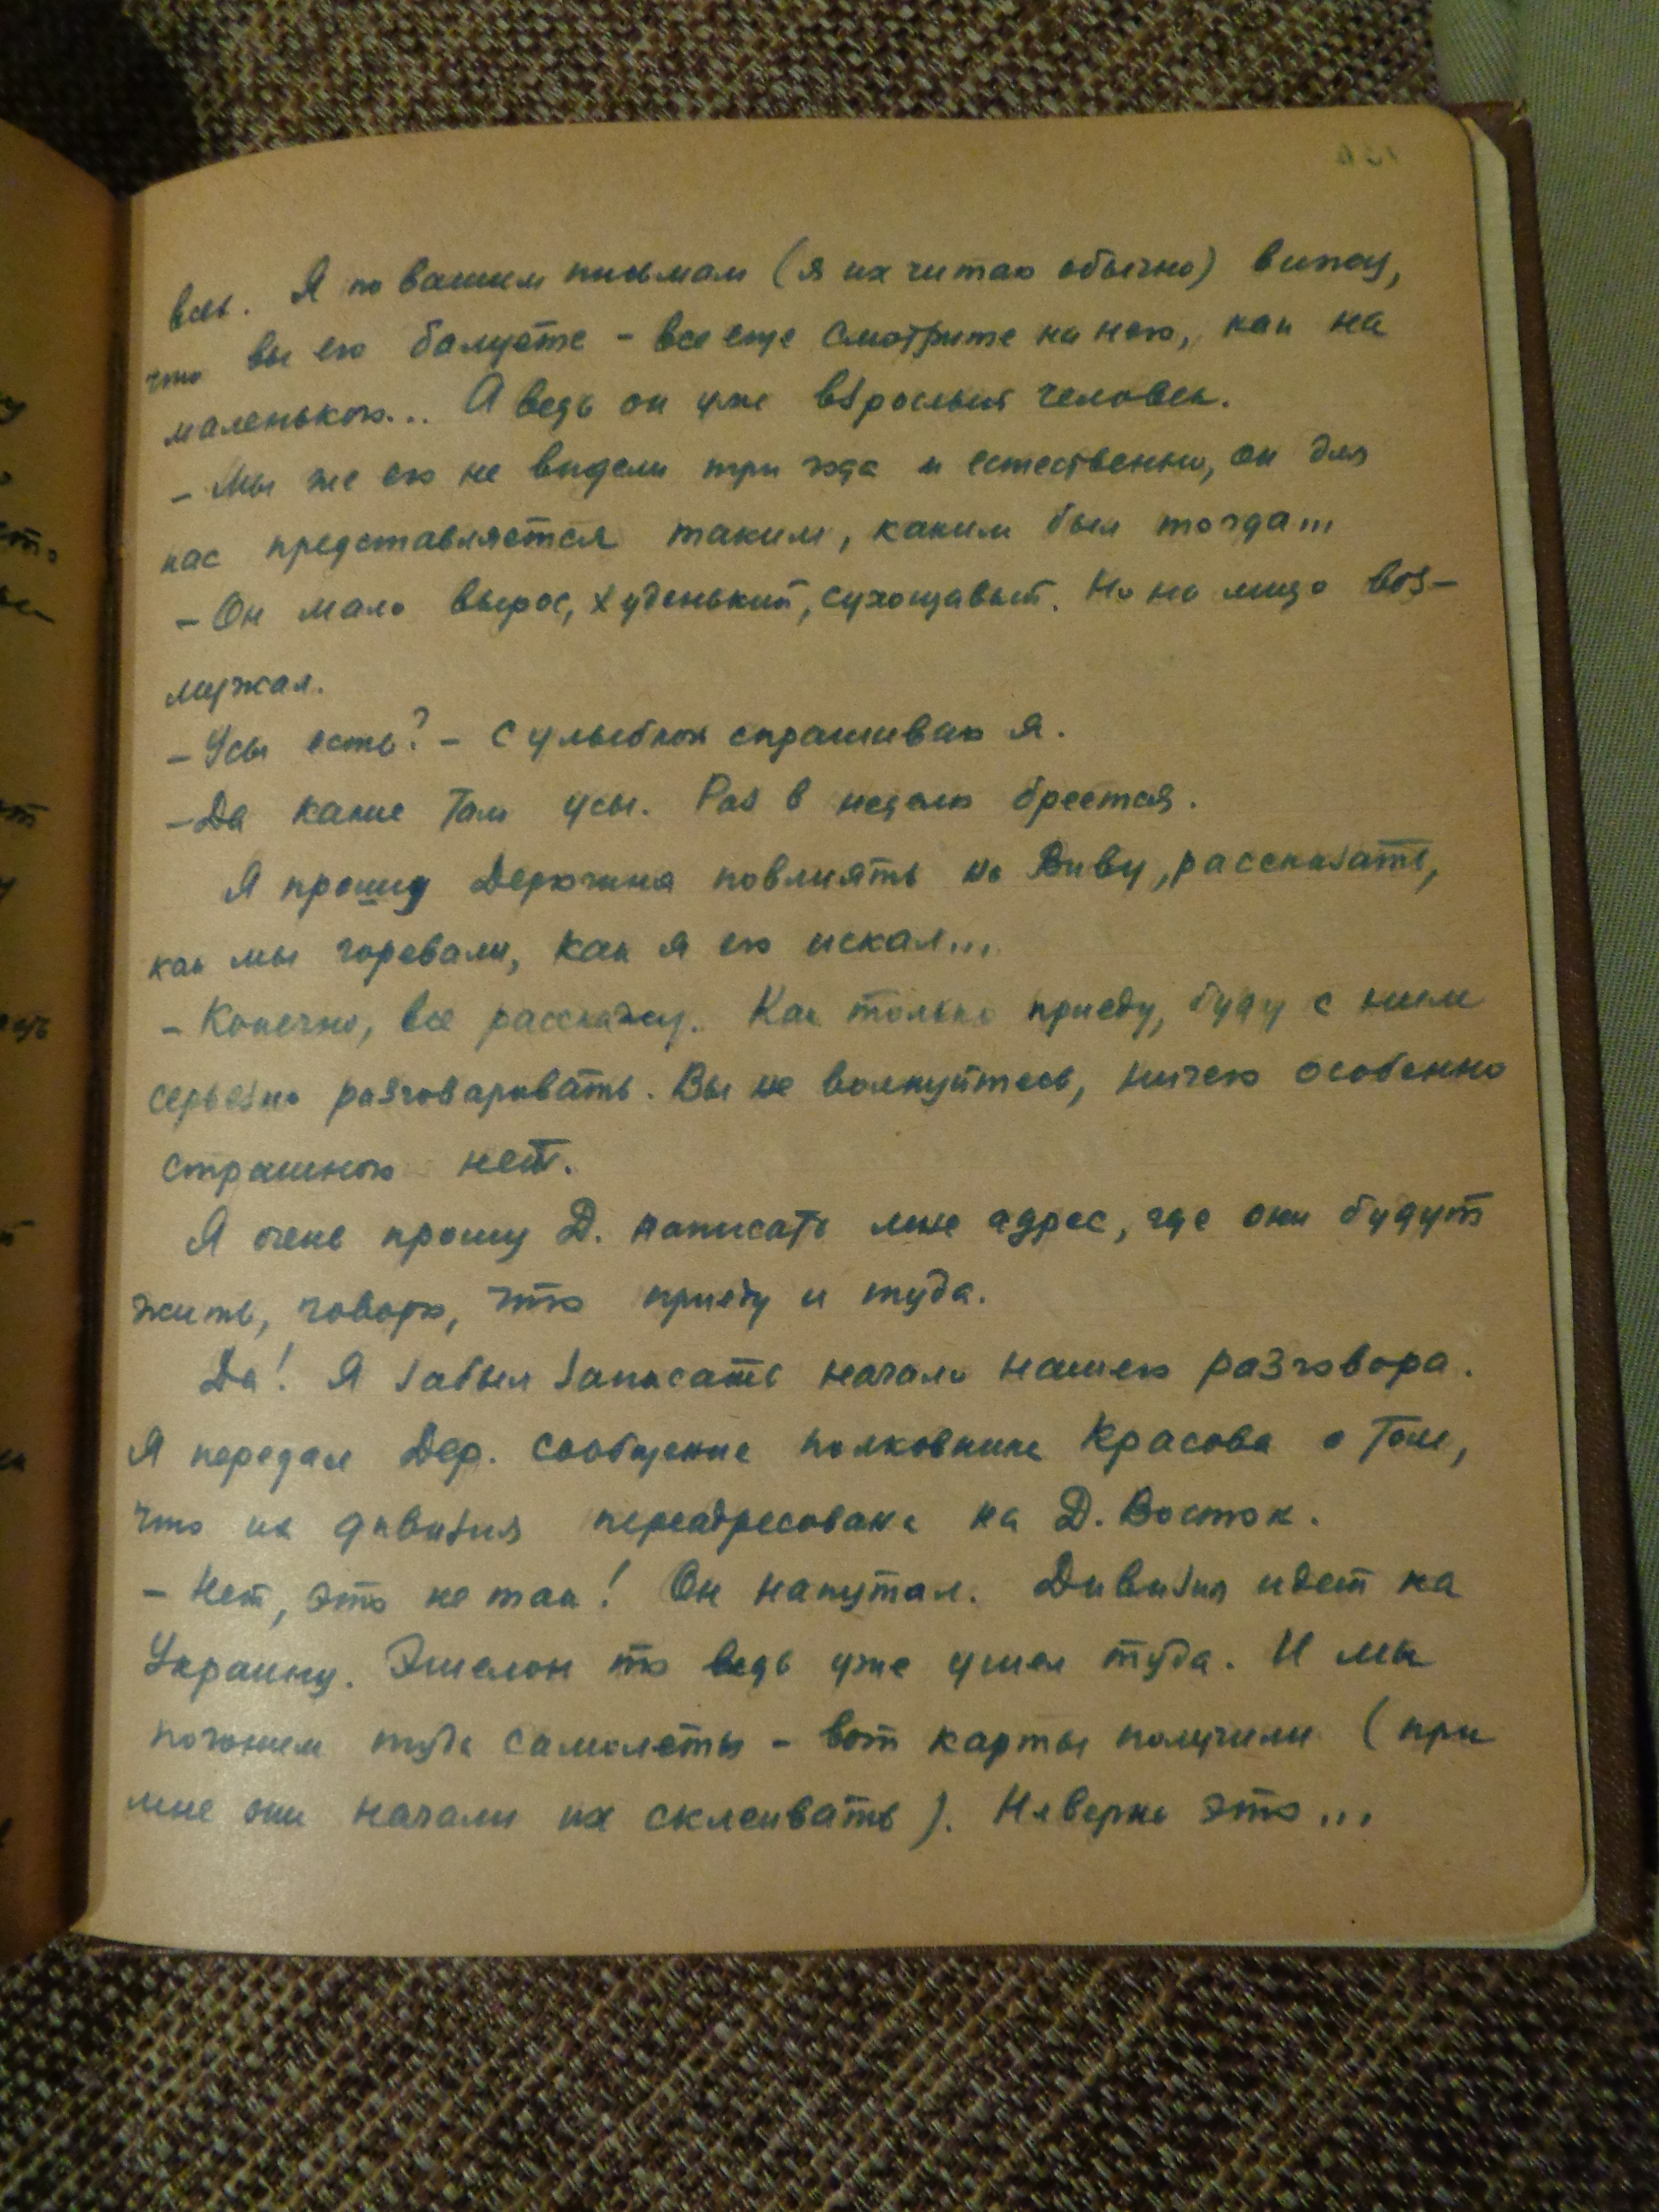 вы. Я по вашим письмам (я их читаю обычно) вижу,
что вы его балуете - все еще смотрите на него, как на
маленького... А ведь он уже взрослый человек.
- Мы же его не видели три года и естественно, он для
нас представляется таким, каким был тогда...
- Он мало вырос, худенький, сухощавый. Но на лицо воз-
мужал.
- Усы есть? - с улыбкой спрашиваю я.
- Да какие там усы. Раз в неделю бреется.
Я прошу Дерюгина повлиять на Виву, рассказать,
как мы горевали, как я его искал...
- Конечно, все расскажу. Как только приеду, буду с ним
серьезно разговаривать. Вы не волнуйтесь, ничего особенно
страшного нет.
Я очень прошу Д. написать мне адрес, где они будут
жить, говорю, что приеду и туда.
Да! Я забыл записать начало нашего разговора.
Я передал Дер. сообщение полковника Красова о том,
что их дивизия переадресована на Д. Восток.
- Нет, это не так! Он напутал. Дивизия идет на
Украину. Эшелон то ведь уже ушел туда. И мы
погоним туда самолеты - вот карты получили (при
мне они начали их склеивать). Неверно это...